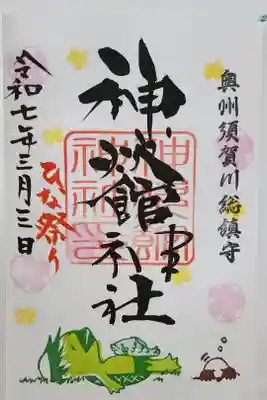 奥州須賀川総鎮守
神炊館神社
令和七年三月三日
ひな祭り